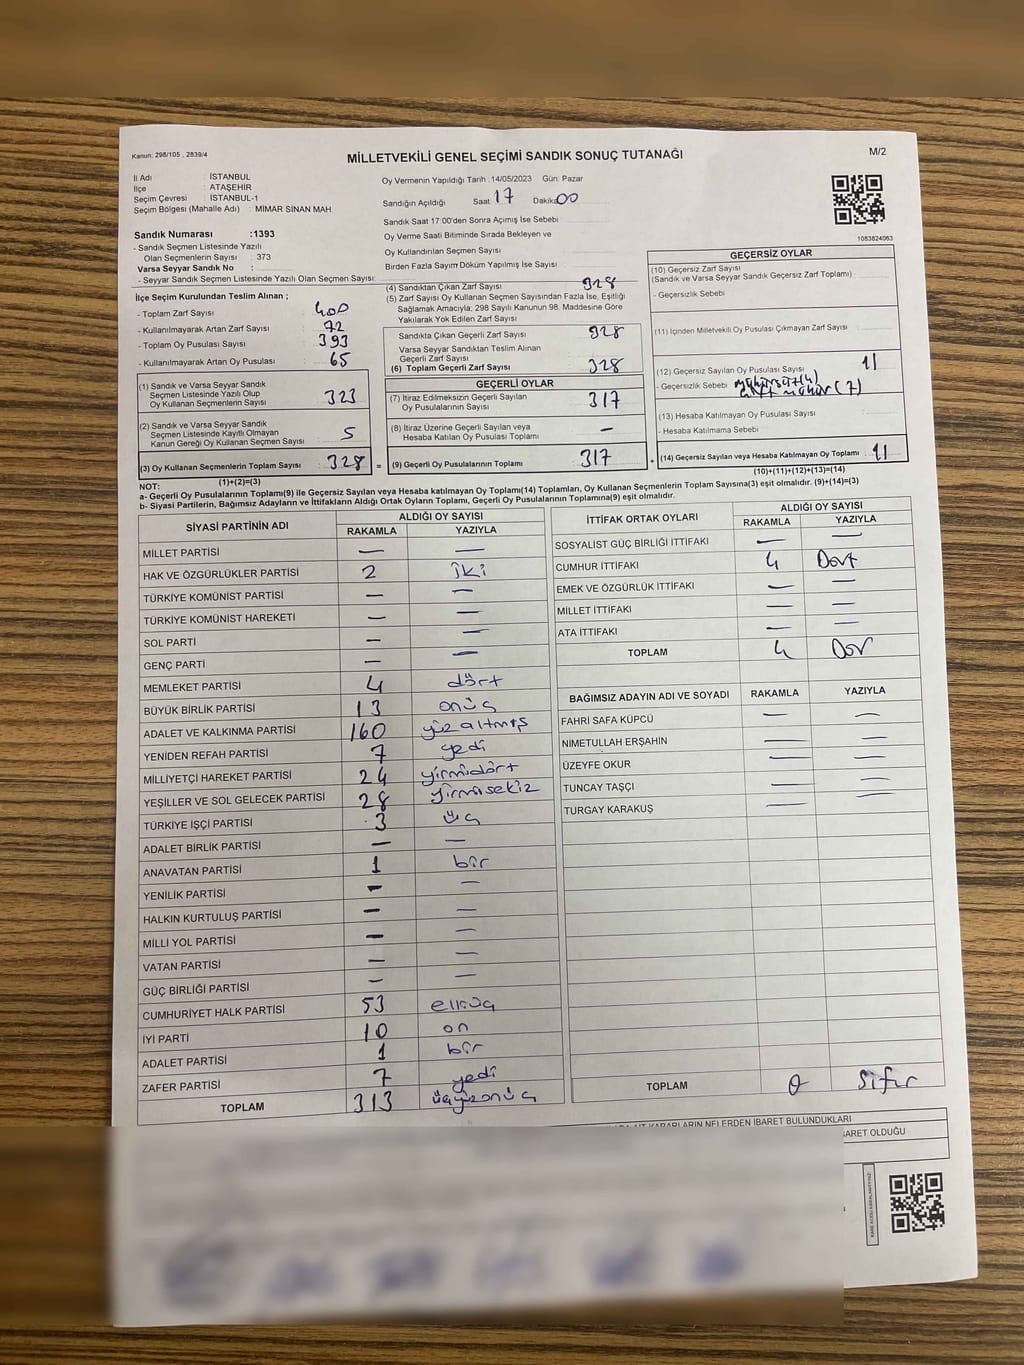 Kanun: 298/105 , 2839/4
MİLLETVEKİLİ GENEL SEÇİMİ SANDIK SONUÇ TUTANAĞI
M/2
İl Adı : İSTANBUL
İlçe : ATAŞEHİR
Seçim Çevresi : İSTANBUL-1
Seçim Bölgesi (Mahalle Adı) : MİMAR SİNAN MAH
Sandık Numarası :1393
- Sandık Seçmen Listesinde Yazılı
Olan Seçmenlerin Sayısı : 373
Varsa Seyyar Sandık No :
- Seyyar Sandık Seçmen Listesinde Yazılı Olan Seçmen Sayısı:
Oy Vermenin Yapıldığı Tarih :14/05/2023 Gün: Pazar
Sandığın Açıldığı Saat 17 Dakika 00
Sandık Saat 17:00'den Sonra Açımış İse Sebebi
Oy Verme Saati Bitiminde Sırada Bekleyen ve
Oy Kullandırılan Seçmen Sayısı
Birden Fazla Sayım Döküm Yapılmış İse Sayısı
1083824063
İlçe Seçim Kurulundan Teslim Alınan ;
- Toplam Zarf Sayısı : 400
- Kullanılmayarak Artan Zarf Sayısı : 72
- Toplam Oy Pusulası Sayısı : 393
- Kullanılmayarak Artan Oy Pusulası : 65
(1) Sandık ve Varsa Seyyar Sandık
Seçmen Listesinde Yazılı Olup
Oy Kullanan Seçmenlerin Sayısı : 323
(2) Sandık ve Varsa Seyyar Sandık
Seçmen Listesinde Kayıtlı Olmayan
Kanun Gereği Oy Kullanan Seçmen Sayısı : 5
(3) Oy Kullanan Seçmenlerin Toplam Sayısı : 328
(1)+(2)=(3)
(4) Sandıktan Çıkan Zarf Sayısı 328
(5) Zarf Sayısı Oy Kullanan Seçmen Sayısından Fazla İse, Eşitliği
Sağlamak Amacıyla; 298 Sayılı Kanunun 98. Maddesine Göre
Yakılarak Yok Edilen Zarf Sayısı
Sandıkta Çıkan Geçerli Zarf Sayısı 328
Varsa Seyyar Sandıktan Teslim Alınan
Geçerli Zarf Sayısı
(6) Toplam Geçerli Zarf Sayısı 328
GEÇERLİ OYLAR
(7) İtiraz Edilmeksizin Geçerli Sayılan
Oy Pusulalarının Sayısı : 317
(8) İtiraz Üzerine Geçerli Sayılan veya
Hesaba Katılan Oy Pusulası Toplamı : —
= (9) Geçerli Oy Pusulalarının Toplamı 317 +
GEÇERSİZ OYLAR
(10) Geçersiz Zarf Sayısı
(Sandık ve Varsa Seyyar Sandık Geçersiz Zarf Toplamı) :
- Geçersizlik Sebebi
(11) İçinden Milletvekili Oy Pusulası Çıkmayan Zarf Sayısı :
(12) Geçersiz Sayılan Oy Pusulası Sayısı : 11
- Geçersizlik Sebebi mühürsüz(4)
çift mühür (7)
(13) Hesaba Katılmayan Oy Pusulası Sayısı :
- Hesaba Katılmama Sebebi
(14) Geçersiz Sayılan veya Hesaba Katılmayan Oy Toplamı : 11
(10)+(11)+(12)+(13)=(14)
NOT:
a- Geçerli Oy Pusulalarının Toplamı(9) ile Geçersiz Sayılan veya Hesaba katılmayan Oy Toplamı(14) Toplamları, Oy Kullanan Seçmenlerin Toplam Sayısına(3) eşit olmalıdır. (9)+(14)=(3)
b- Siyasi Partilerin, Bağımsız Adayların ve İttifakların Aldığı Oyların Toplamı, Geçerli Oy Pusulalarının Toplamına(9) eşit olmalıdır.
SİYASİ PARTİNİN ADI ALDIĞI OY SAYISI
RAKAMLA YAZIYLA
MİLLET PARTİSİ — —
HAK VE ÖZGÜRLÜKLER PARTİSİ 2 iki
TÜRKİYE KOMÜNİST PARTİSİ — —
TÜRKİYE KOMÜNİST HAREKETİ — —
SOL PARTİ — —
GENÇ PARTİ — —
MEMLEKET PARTİSİ 4 dört
BÜYÜK BİRLİK PARTİSİ 13 onüç
ADALET VE KALKINMA PARTİSİ 160 yüzaltmış
YENİDEN REFAH PARTİSİ 7 yedi
MİLLİYETÇİ HAREKET PARTİSİ 24 yirmidört
YEŞİLLER VE SOL GELECEK PARTİSİ 28 yirmisekiz
TÜRKİYE İŞÇİ PARTİSİ 3 üç
ADALET BİRLİK PARTİSİ — —
ANAVATAN PARTİSİ 1 bir
YENİLİK PARTİSİ — —
HALKIN KURTULUŞ PARTİSİ — —
MİLLİ YOL PARTİSİ — —
VATAN PARTİSİ — —
GÜÇ BİRLİĞİ PARTİSİ — —
CUMHURİYET HALK PARTİSİ 53 elliüç
İYİ PARTİ 10 on
ADALET PARTİSİ 1 bir
ZAFER PARTİSİ 7 yedi
TOPLAM 313 üçyüzonüç
İTTİFAK ORTAK OYLARI ALDIĞI OY SAYISI
RAKAMLA YAZIYLA
SOSYALİST GÜÇ BİRLİĞİ İTTİFAKI — —
CUMHUR İTTİFAKI 4 Dört
EMEK VE ÖZGÜRLÜK İTTİFAKI — —
MİLLET İTTİFAKI — —
ATA İTTİFAKI — —
TOPLAM 4 Dör
BAĞIMSIZ ADAYIN ADI VE SOYADI RAKAMLA YAZIYLA
FAHRİ SAFA KÜPCÜ — —
NİMETULLAH ERŞAHİN — —
ÜZEYFE OKUR — —
TUNCAY TAŞÇI — —
TURGAY KARAKUŞ — —
TOPLAM 0 Sıfır
KARARLARIN NELERDEN İBARET BULUNDUKLARI
İBARET OLDUĞU